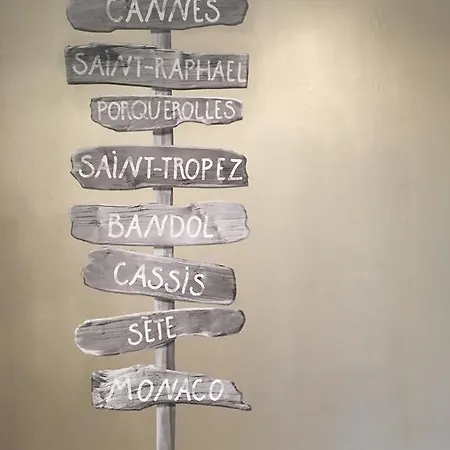 CANNES
SAINT-RAPHAEL
PORQUEROLLES
SAINT-TROPEZ
BANDOL
CASSIS
SÈTE
MONACO